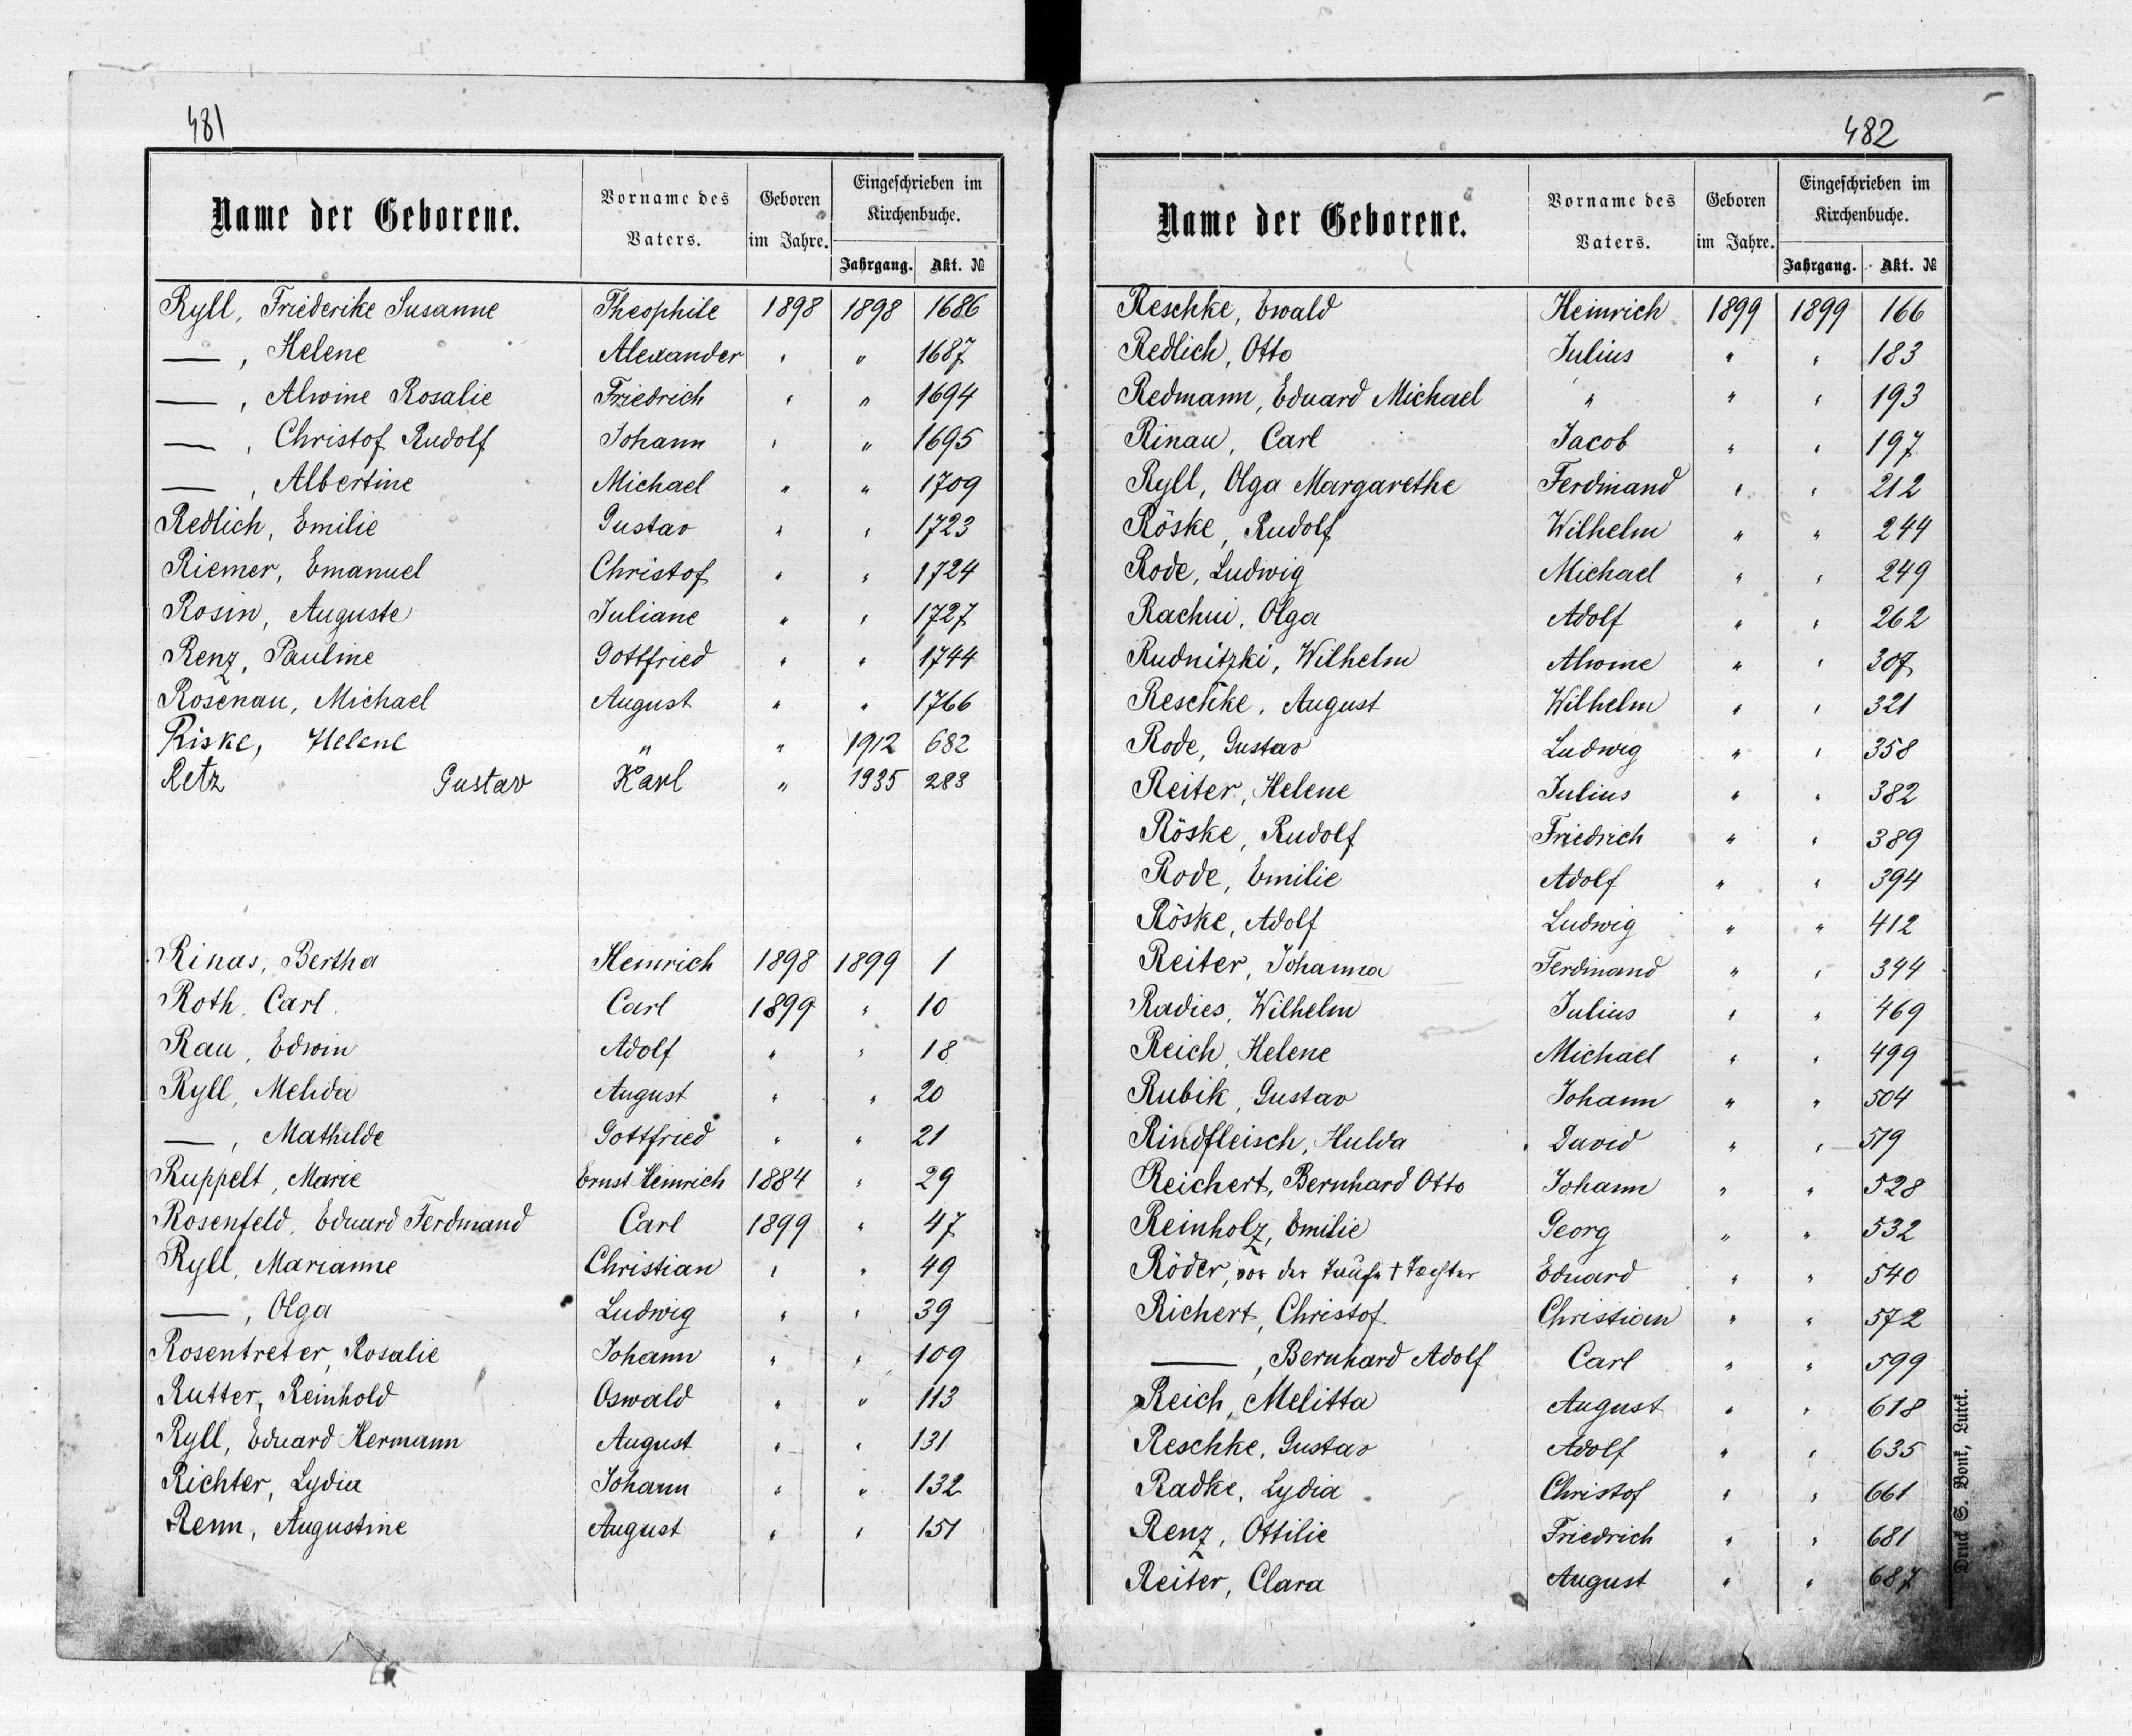 481
Name der Geborene. Vorname des Vaters. Geboren im Jahre. Eingeschrieben im Kirchenbuche. Jahrgang. Akt. №
Ryll, Friederike Susanne Theophile 1898 1898 1686
—, Helene Alexander " " 1687
—, Alwine Rosalie Friedrich " " 1694
—, Christof Rudolf Johann " " 1695
—, Albertine Michael " " 1709
Redlich, Emilie Gustav " " 1723
Riemer, Emanuel Christof " " 1724
Rosin, Auguste Juliane " " 1727
Renz, Pauline Gottfried " " 1744
Rosenau, Michael August " " 1766
Riske, Helene " " 1912 682
Retz Gustav Karl " 1935 283
Rinas, Bertha Heinrich 1898 1899 1
Roth, Carl Carl 1899 " 10
Rau, Edwin Adolf " " 18
Ryll, Melida August " " 20
—, Mathilde Gottfried " " 21
Ruppelt, Marie Ernst Heinrich 1884 " 29
Rosenfeld, Eduard Ferdinand Carl 1899 " 47
Ryll, Marianne Christian " " 49
—, Olga Ludwig " " 39
Rosentreter, Rosalie Johann " " 109
Rutter, Reinhold Oswald " " 113
Ryll, Eduard Hermann August " " 131
Richter, Lydia Johann " " 132
Renn, Augustine August " " 151
482
Name der Geborene. Vorname des Vaters. Geboren im Jahre. Eingeschrieben im Kirchenbuche. Jahrgang. Akt. №
Reschke, Ewald Heinrich 1899 1899 166
Redlich, Otto Julius " " 183
Redmann, Eduard Michael " " " 193
Rinau, Carl Jacob " " 197
Ryll, Olga Margarethe Ferdinand " " 212
Röske, Rudolf Wilhelm " " 244
Rode, Ludwig Michael " " 249
Rachui, Olga Adolf " " 262
Rudnitzki, Wilhelm Alwine " " 307
Reschke, August Wilhelm " " 321
Rode, Gustav Ludwig " " 358
Reiter, Helene Julius " " 382
Röske, Rudolf Friedrich " " 389
Rode, Emilie Adolf " " 394
Röske, Adolf Ludwig " " 412
Reiter, Johanna Ferdinand " " 344
Radies, Wilhelm Julius " " 469
Reich, Helene Michael " " 499
Rubik, Gustav Johann " " 504
Rindfleisch, Hulda David " " 519
Reichert, Bernhard Otto Johann " " 528
Reinholz, Emilie Georg " " 532
Röder, vor der Taufe † Tochter Eduard " " 540
Richert, Christof Christian " " 572
—, Bernhard Adolf Carl " " 599
Reich, Melitta August " " 618
Reschke, Gustav Adolf " " 635
Radke, Lydia Christof " " 661
Renz, Ottilie Friedrich " " 681
Reiter, Clara August " " 687
Druck S. Bonk, Lutzk.